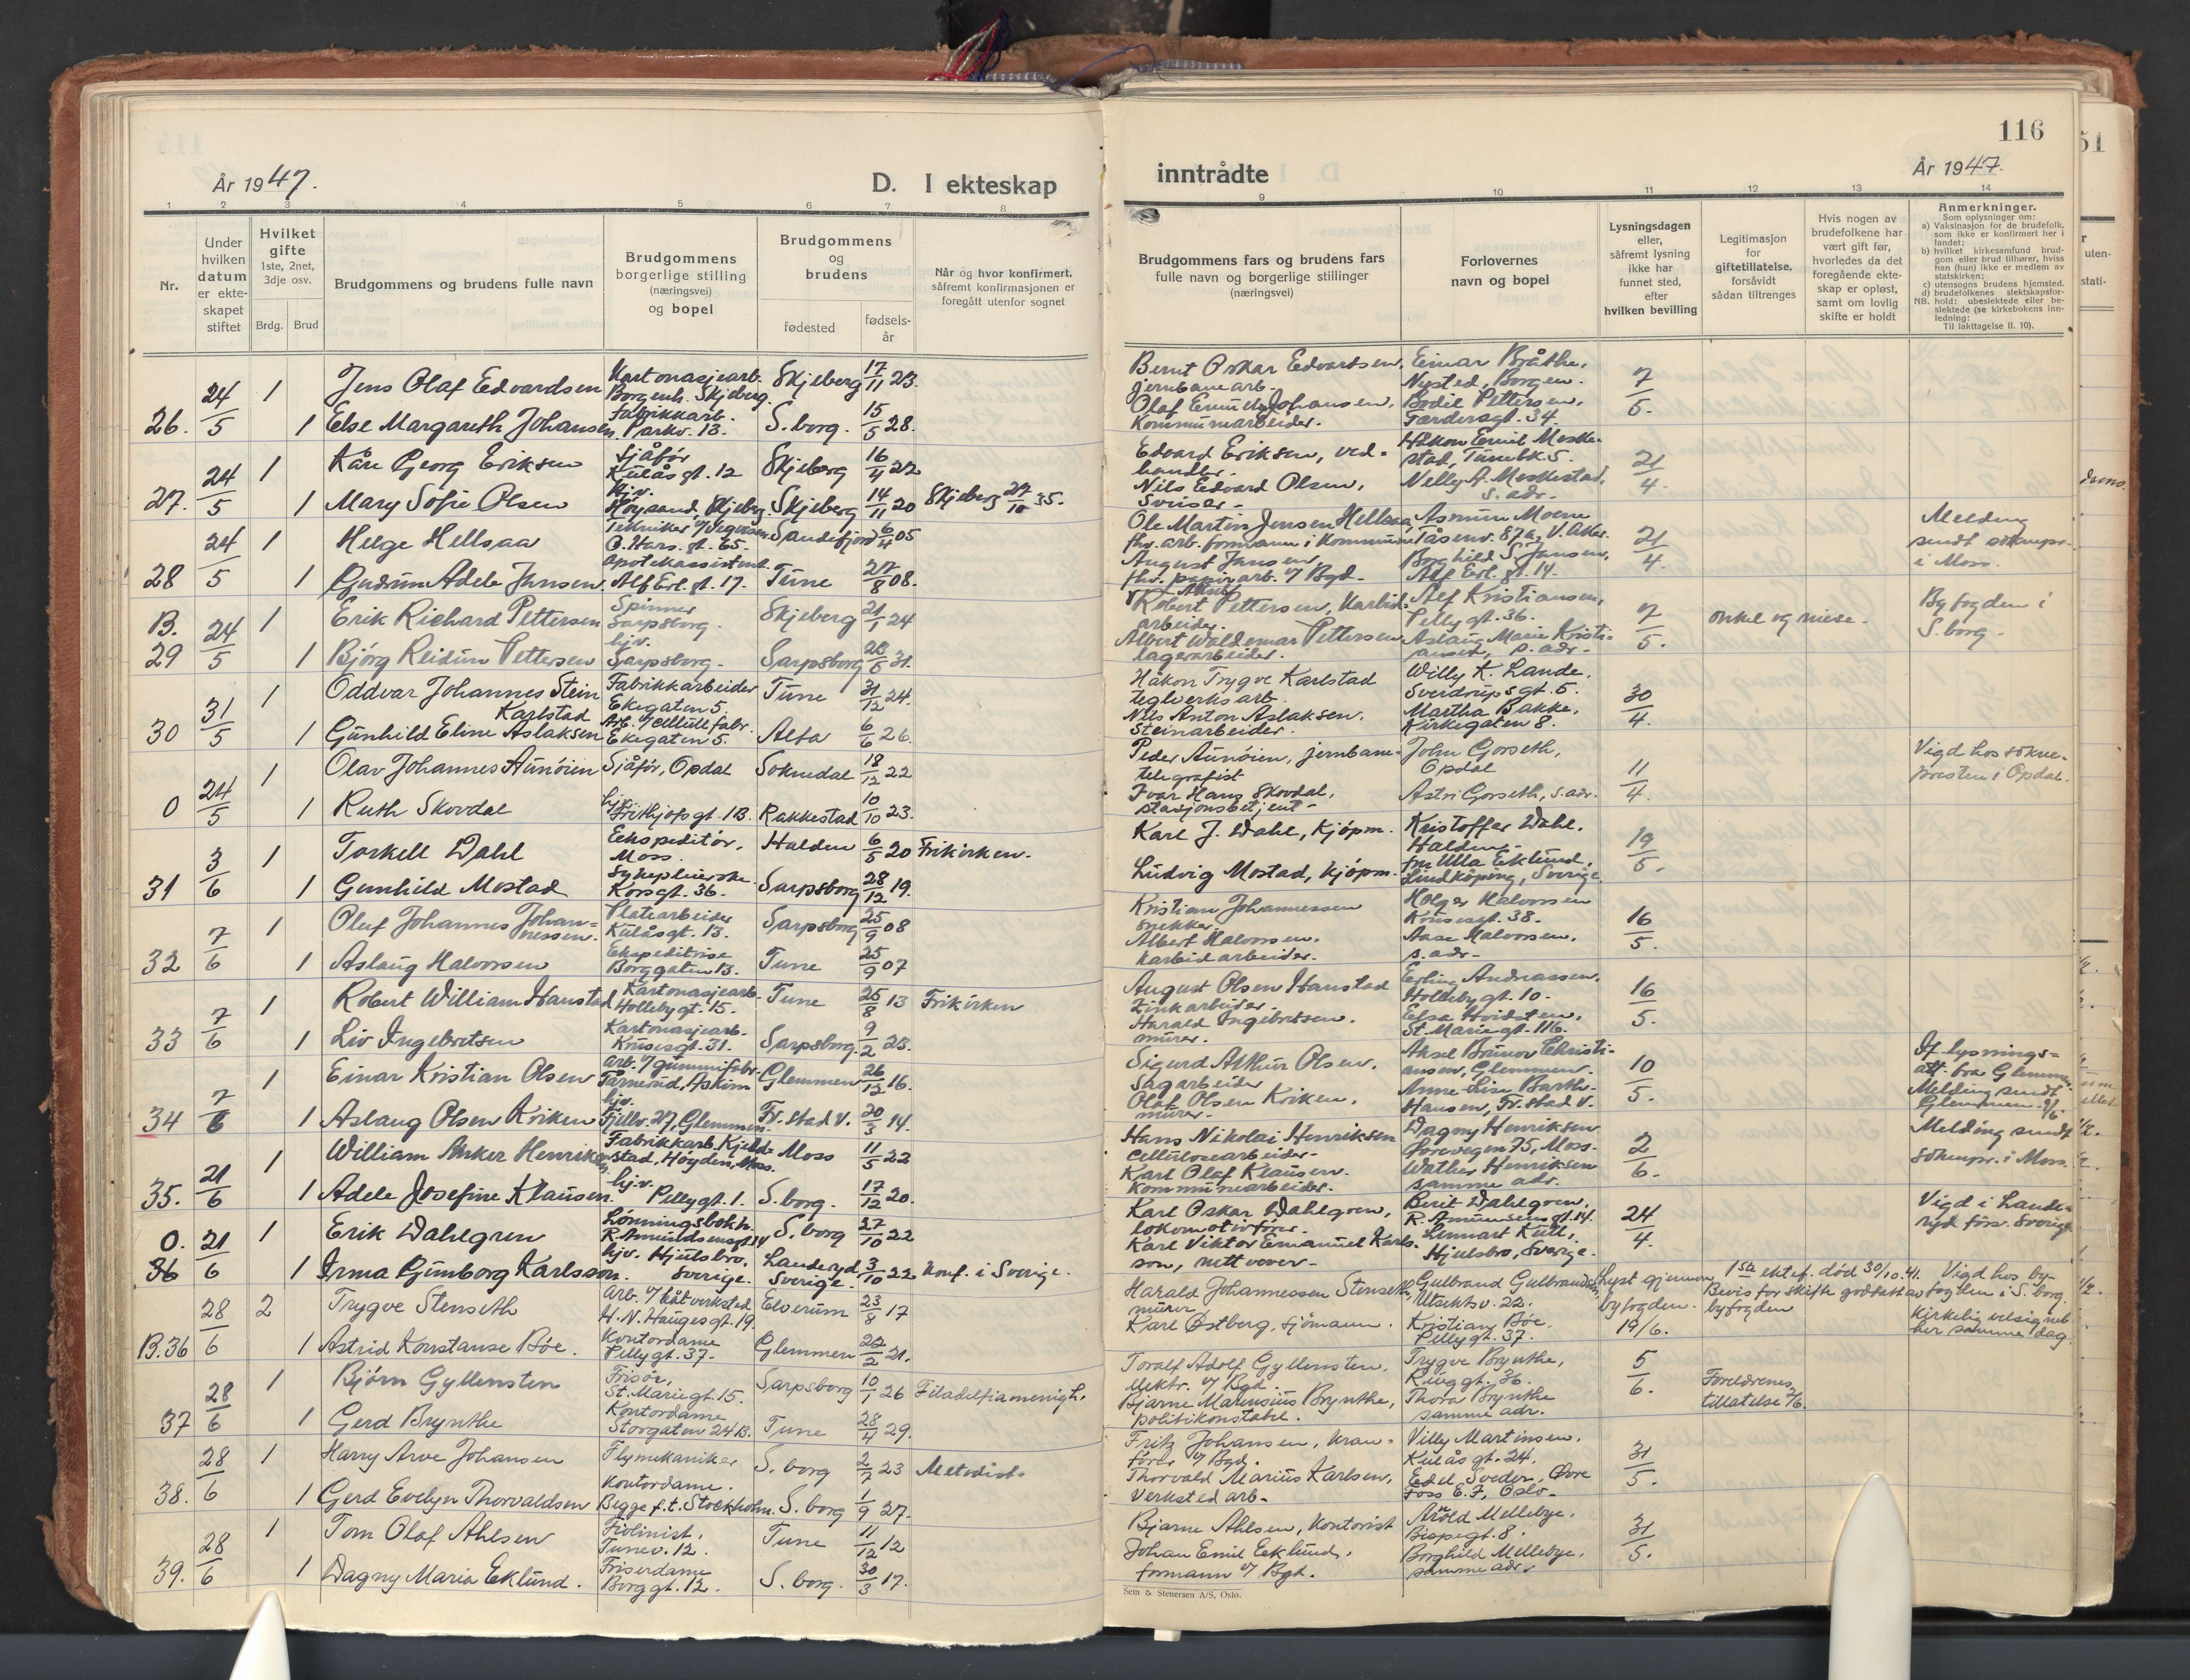 116
51
År 1947.
D. I ekteskap
inntrådte
År 1947.
1 2 3 4 5 6 7 8
9 10 11 12 13 14
Nr.
Under hvilken datum er ekteskapet stiftet
Hvilket gifte 1ste, 2net, 3dje osv.
Brdg. Brud
Brudgommens og brudens fulle navn
Brudgommens borgerlige stilling (næringsvei) og bopel
Brudgommens og brudens
fødested
fødselsår
Når og hvor konfirmert, såfremt konfirmasjonen er foregått utenfor sognet
Brudgommens fars og brudens fars fulle navn og borgerlige stillinger (næringsvei)
Forlovernes navn og bopel
Lysningsdagen eller, såfremt lysning ikke har funnet sted, efter hvilken bevilling
Legitimasjon for giftetillatelse, forsåvidt sådan tiltrenges
Hvis nogen av brudefolkene har vært gift før, hvorledes da det foregående ekteskap er opløst, samt om lovlig skifte er holdt
Anmerkninger.
Som oplysninger om:
a) Vaksinasjon for de brudefolk, som ikke er konfirmert her i landet;
b) hvilket kirkesamfund brudgom eller brud tilhører, hviss han (hun) ikke er medlem av statskirken;
c) utensogns brudens hjemsted.
d) brudefolkenes slektskapsforhold: ubeslektede eller beslektede (se kirkebokens innledning:
NB.
Til iakttagelse II. 10).
26. 24/5 1 Jens Olaf Edvardsen Kartonasjearb. Borgenh. Skjeberg. Skjeberg 17/11 23.
1 Else Margareth Johansen Fabrikkarb. Parkv. 13. S.borg. 15/5 28.
Bernt Oskar Edvardsen, jernbanearb. Einar Bråthe, Nysted, Borgen. 7/5.
Olaf Emil Johansen, Kommunearbeider. Bodil Pettersen, Færdersgt. 34.
27. 24/5 1 Kåre Georg Eriksen Sjåfør Kulåsgt. 12 Skjeberg 16/4 22
1 Mary Sofie Olsen Hjv. Høysand, Skjeberg. Skjeberg 14/11 20 Skjeberg 27/10 35.
Edvard Eriksen, vedhandler. Håkon Emil Meskestad, Tunebk. 5. 21/4.
Nils Edvard Olsen, Sveiser. Nelly A. Meskestad, s. adr.
28 24/5 1 Helge Hellsaa Tekniker O. Hars. gt. 65. Sandefjord 6/4 05
1 Gudrun Adele Jansen Apotekassistent Alf Erl. gt. 17. Tune 27/8 08.
Ole Martin Jensen Hellsaa, fhv. arb. formann i kommunen Asmun Moene Tåsenv. 87a, V. Aker. 21/4. Melding sendt soknepr. i Moss.
August Jansen, fhv. papirarb. v/ Bgd. Borghild S. Jansen, Alf Erl. gt. 14.
B. 29 24/5 1 Erik Richard Pettersen Spinner Sarpsborg. Skjeberg 21/1 24
1 Bjørg Reidun Pettersen hjv. Sarpsborg. Sarpsborg 31.
Robert Pettersen, Karbidarbeider. Alf Kristiansen, Pellygt. 36. 7/5. onkel og niese. Byfogden i S.borg.
Albert Waldemar Pettersen lagerarbeider. Aslaug Marie Kristiansen, s. adr.
30 31/5 1 Oddvar Johannes Stein Karlstad Fabrikkarbeider Ekegaten 5. Tune 31/12 24.
1 Gunhild Eline Aslaksen Arb. v/ cellullfabr. Ekegaten 5. Alta 6/6 26.
Håkon Trygve Karlstad teglverksarb. Willy K. Lande. Sverdrupsgt. 5. 30/4.
Nils Anton Aslaksen. Steinarbeider. Martha Bakke, Kirkegaten 8.
0 24/5 1 Olav Johannes Aunøien Sjåfør, Opdal Soknedal 18/12 22
1 Ruth Skovdal hjv. Frithjofsgt. 1B. Rakkestad 10/10 23.
Peder Aunøien, jernbanetelegrafist John Gorseth, Opdal 11/4. Vigd hos soknepresten i Opdal.
Ivar Hans Skovdal, stasjonsbetjent Astri Gorseth, s. adr.
31 3/6 1 Torkell Dahl Ekspeditør, Moss. Halden 6/5 20 Frikirken.
1 Gunhild Mostad Sykepleierske Korsgt. 36. Sarpsborg 28/12 19.
Karl J. Dahl, Kjøpm. Kristoffer Dahl. Halden. 19/5.
Ludvig Mostad, kjøpm. fru Ulla Eklund, Lindköping, Sverige.
32 7/6 1 Oluf Johannes Johannessen. Platearbeider Kulåsgt. 13. Sarpsborg 25/9 08
1 Aslaug Halvorsen Ekspeditrise Borggaten 13. Tune 25/9 07
Kristian Johannessen snekker. Holger Halvorsen Krusesgt. 38. 16/5.
Albert Halvorsen. Karbidarbeider. Aase Halvorsen. s. adr.
33 7/6 1 Robert William Hanstad Kartonasjearb. Hollebygt. 15. Tune 25/8 13 Frikirken
1 Liv Ingebretsen Kartonasjearb. Krusesgt. 31. Sarpsborg. 9/2 23.
August Olsen Hanstad Zinkarbeider. Erling Andreassen, Hollebygt. 10. 16/5.
Harald Ingebretsen. murer. Elsa Hvidsten, St. Mariegt. 116.
34 7/6 1 Einar Kristian Olsen Arb. v/ gummifabr. Askim Glemmen 26/12 16.
1 Aslaug Olsen Kriken hjv. Fjellv. 27, Glemmen. Fr.stad V. 20/3 14.
Sigurd Arthur Olsen. Sagarbeider Aksel Brunov Christiansen, Glemmen. 10/5. If lysningsatt. fra Glemmen. Melding sendt Glemmen. 9/6.
Olaf Olsen Kriken. murer. Anne Lise Barth-Hansen, Fr.stad V.
35. 21/6 1 William Anker Henriksen Fabrikkarb. Høyden, Moss. Moss 11/5 22
1 Adele Josefine Klausen. hjv. Pellygt. 1. S.borg. 17/12 20.
Hans Nikolai Henriksen cellulosearbeider. Dagny Henriksen 75, Moss. 2/6. Melding sendt soknepr. i Moss.
Karl Olaf Klausen. Kommunearbeider. Walther Henriksen samme adr.
0. 36 21/6 1 Erik Dahlgren Lønningsbokh. R. Amundsensgt. 14 S.borg 27/10 22
1 Irma Gunborg Karlsson. hjv. Hjulsbro, Sverige. Landeryd, Sverige. 3/10 22 Konf. i Sverige.
Karl Oskar Dahlgren, lokomotivfører. Berit Dahlgren, R. Amundsensgt. 14. 24/4. Vigd i Landeryd förs. Sverige
Karl Viktor Emanuel Karlsson, Lennart Kull, Hjulsbro, Sverige.
B. 36 28/6 2 Trygve Stenseth Arb. v/ båtverksted H. N. Haugesgt. 19. Elverum 23/8 17
1 Astrid Konstanse Bøe. Kontordame Pellygt. 37. Glemmen 22/2 21.
Harald Johannessen Stenseth, murer Gulbrand Gulbrandsen, Utsiktsv. 22. Lyst gjennom byfogden. 19/6. 1ste ektef. død 30/10.41. Bevis for skifte godtatt av byfogden Vigd hos byfogden i S.borg. Kirkelig velsignet her samme dag.
Karl Østberg, sjömann. Kristian Bøe, Pellygt. 37.
37 28/6 1 Bjørn Gyllensten Frisør, St. Mariegt. 15. Sarpsborg 10/1 26 Filadelfiamenigh.
1 Gerd Brynthe Kontordame Storgaten 24B. Tune 28/4 29.
Toralf Adolf Gyllensten, v/ Bgd. Trygve Brynthe, 36. 5/6. Foreldrenes tillatelse 7/6.
Bjarne Marensius Brynthe, politikonstabel. Thora Brynthe samme adr.
38. 28/6 1 Harry Arve Johansen Flymekaniker S.borg 2/7 23 Metodist.
1 Gerd Evelyn Thorvaldsen Kontordame. Begge f.t. Stockholm. S.borg 1/9 27.
Fritz Johansen, kranfører v/ Bgd. Villy Martinsen. Kulåsgt. 24. 31/5.
Thorvald Marius Karlsen, Verkstedarb. Edel Sveder, Øvre Foss E.F, Oslo.
39. 28/6 1 Tom Olaf Ahlsen Fiolinist, Tunev. 12. Tune 11/12 12
1 Dagny Maria Eklund. Friserdame Borggt. 12. S.borg. 30/3 17.
Bjarne Ahlsen, Kontorist Arnold Mellebye, Bispegt. 8. 31/5.
Johan Emil Eklund, formann v/ Bgd. Borghild Mellebye, samme adr.
Sem & Stenersen A/S, Oslo.